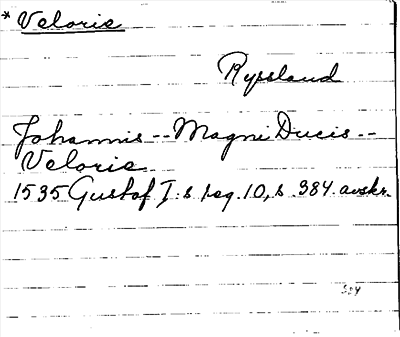 * Veloris
Ryssland
Johannis -- Magni Ducis --
Veloris
1535 Gustaf I:s reg. 10, s. 384 avskr.